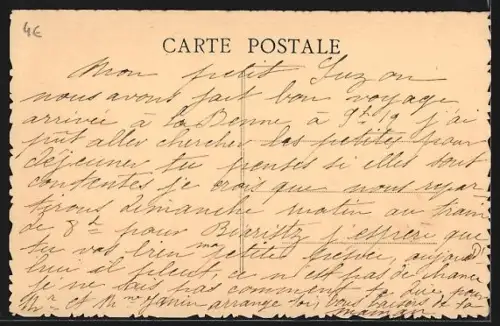 4€
CARTE POSTALE
Mon petit Suzon
nous avons fait bon voyage
arrivée à la Benne à 9h 19 j'ai
pût aller chercher les petites pour
déjeuner tu penses si elles sont
contentes je crois que nous repar-
tirons dimanche matin au train
de 8h pour Biarritz j'espère que
tu vas bien ma petite
il pleut, ce n'est pas de chance
je ne sais pas comment te dire pour
Mr et Mme arrange toi, bons baisers de ta
maman